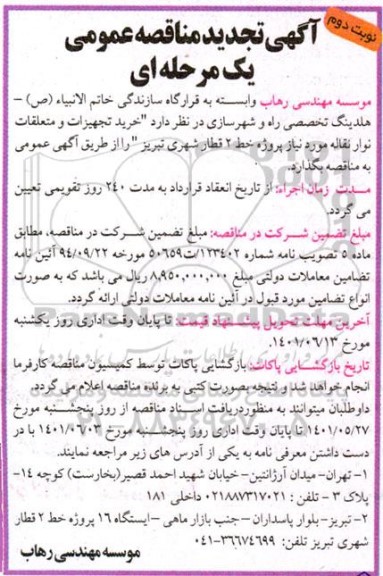 نوبت دوم
آگهی تجدید مناقصه عمومی
یک مرحله ای
موسسه مهندسی رهاب وابسته به قرارگاه سازندگی خاتم الانبیاء (ص) –
هلدینگ تخصصی راه و شهرسازی در نظر دارد "خرید تجهیزات و متعلقات
نوار نقاله مورد نیاز پروژه خط ۲ قطار شهری تبریز " را از طریق آگهی عمومی
به مناقصه بگذارد.
مدت زمان اجراء: از تاریخ انعقاد قرارداد به مدت ۲۴۰ روز تقویمی تعیین
می گردد.
مبلغ تضمین شرکت در مناقصه: مبلغ تضمین شرکت در مناقصه، مطابق
ماده ۵ تصویب نامه شماره ۱۲۳۴۰۲/ت۵۰۶۵۹ مورخه ۹۴/۰۹/۲۲ آئین نامه
تضامین معاملات دولتی مبلغ ۸,۹۵۰,۰۰۰,۰۰۰ ریال می باشد که به صورت
انواع تضامین مورد قبول در آئین نامه معاملات دولتی ارائه گردد.
آخرین مهلت تحویل پیشنهاد قیمت: تا پایان وقت اداری روز یکشنبه
مورخ ۱۴۰۱/۰۶/۱۳.
تاریخ بازگشایی پاکات: بازگشایی پاکات توسط کمیسیون مناقصه کارفرما
انجام خواهد شد و نتیجه بصورت کتبی به برنده مناقصه اعلام می گردد.
داوطلبان میتوانند به منظور دریافت اسناد مناقصه از روز پنجشنبه مورخ
۱۴۰۱/۰۵/۲۷ تا پایان وقت اداری روز پنجشنبه مورخ ۱۴۰۱/۰۶/۰۳ با در
دست داشتن معرفی نامه به یکی از آدرس های زیر مراجعه نمایند.
۱- تهران- میدان آرژانتین- خیابان شهید احمد قصیر(بخارست) کوچه ۱۴-
پلاک ۳ - تلفن : ۰۲۱۸۸۷۳۱۷۰۲۱ داخلی ۱۸۱
۲- تبریز- بلوار پاسداران – جنب بازار ماهی – ایستگاه ۱۶ پروژه خط ۲ قطار
شهری تبریز تلفن: ۳۶۶۷۴۶۹۹-۰۴۱
موسسه مهندسی رهاب